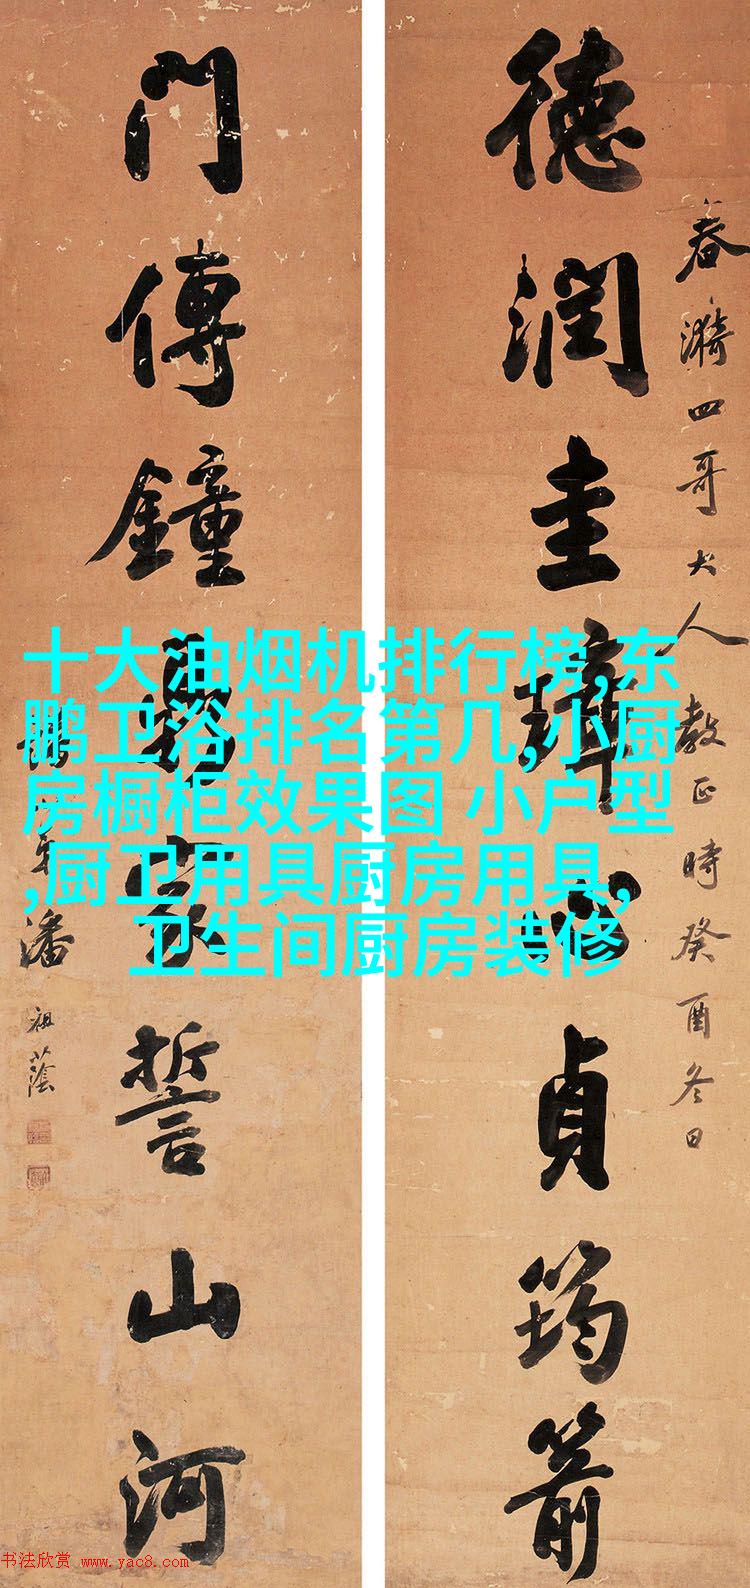 德潤圭璋心貞筠箭
春漪四哥大人教正時癸酉冬日
門傳鐘鼎家誓山河
潘祖蔭
十大油烟机排行榜,东
鹏卫浴排名第几,小厨
房橱柜效果图 小户型
,厨卫用具厨房用具,
卫生间厨房装修
书法欣赏 www.yac8.com